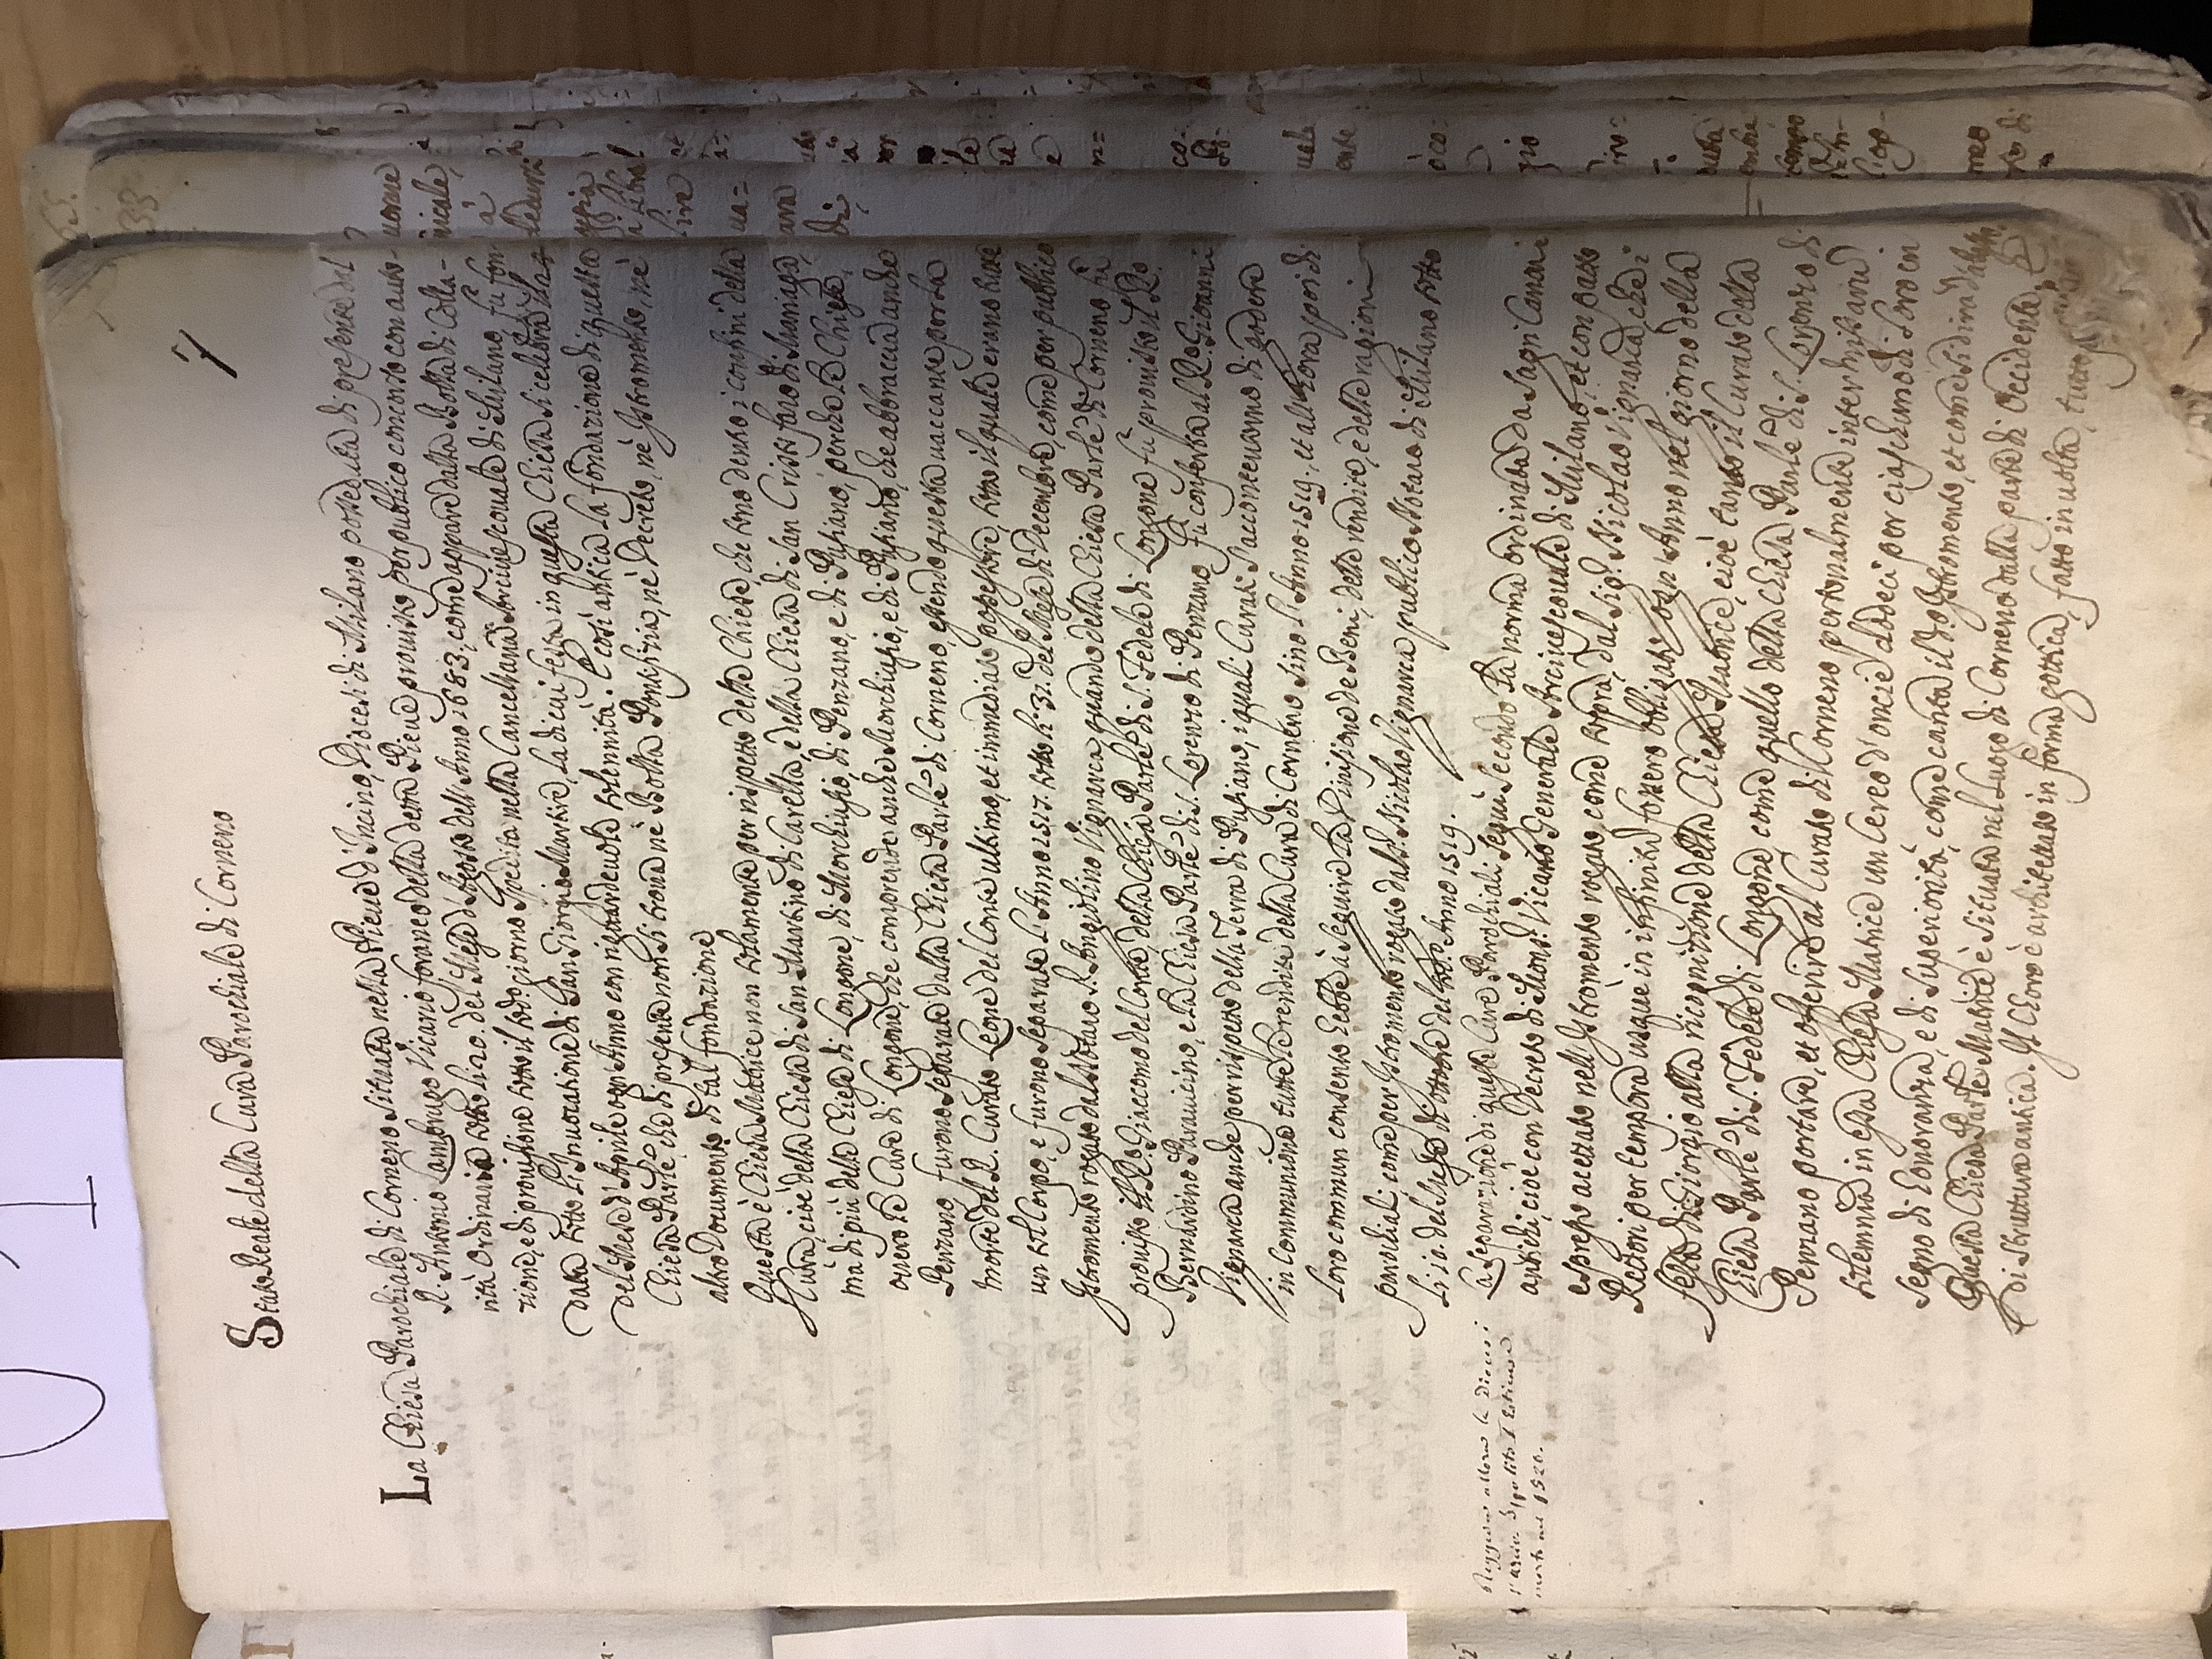 7
Stato Reale della Cura Parochiale di Corneno
La Chiesa Parochiale di Corneno situata nella Pieve d'Incino, Diocesi di Milano posseduta di presente dal
R. Antonio Lambrugo Vicario foraneo della detta Pieve provisto per publico concorso con auto-
rità Ordinaria sotto li 20. del Mese d'Agosto dell'Anno 1683, come appare dalla Bolla di Colla-
zione, e di provisione sotto il sodo. giorno spedita nella Cancellaria Arcivescovale di Milano fù fon
data sotto l'Invocatione di San Giorgio Martire, la di cui festa in questa Chiesa si celebra
del Mese d'Aprile ogn'Anno con riguardevole solennità. È così antica la fondazione di questa
Chiesa Parle che di presente non si trova nè Bolla Pontifizia, nè Decreto, nè Istromento, nè
altro Documento di tal fondazione
Questa è Chiesa Matrice non solamente per rispetto delle Chiese, che sono dentro i confini della
Cura, cioè della Chiesa di San Martino di Carella, e della Chiesa di San Crisosforo di Mariaga,
mà di più delle Chiese di Longone, di Morchiufio, di Penzano, e di Pusiano, perche le Chiese,
overo le Cure di Longone, che comprende anche Morchiufio, e di Pusiano, che abbraccia anche
Penzano furono separate dalla Chiesa Parle di Corneno, essendo questa vaccante per la
morte del R. Curato Leone del Conte ultimo, et immediato possessore, sotto il quale erano trè
un sol Corpo, e furono separate l'Anno 1517. sotto li 31. del Mese di Decembre, come per publico
Istromento rogato dal Notaro R. Longichino Vignarca quando della Chiesa Parle di Corneno fù
provisto il R.do Giaccomo del Conte, della Chiesa Parle di S. Fedele di Longone fù promosso il R.do
Bernardino Paravicino, e la Chiesa Parle di S. Lorenzo di Penzano fù conferta al R.do Giovanni
Vignarca anche per rispetto della Terra di Pusiano, i quali Curati s'acconvennero di godere
in Communione tutte le rendite della Cura di Corneno sino l'Anno 1519, et all'hora poi di
loro commun consenso s'ebbe à seguire la Divisione de Beni, delle rendite, e delle ragioni
parochiali come per Istromento rogato dal S. Nicolao Vignarca publico Notaro di Milano sotto
li 10. del Mese di ottobre del sod. Anno 1519.
La separazione di queste Cure Parochiali seguì secondo la norma ordinata da Sagri Canoni
antichi, cioè con Decreto di Mons. Vicario Generale Arcivescovale di Milano, et con patto
espresso accettato nell'Istromento rogato come sopra, dal Sig. Nicolao Vignarca, che i
Rettori per tempora usque in infinito fossero obligati ogn'Anno nel giorno della
festa di S. Giorgio alla ricognitione della Chiesa Matrice, cioè tanto il Curato della
Chiesa Parle di S. Fedele di Longone, come quello della Chiesa Parle di S. Lorenzo di
Penzano portare, et offerire al Curato di Corneno personalmente inter missarum
solemnia in essa Chiesa Matrice un Cereo d'oncie dodeci per ciascheduno di loro in
segno di honoranza, e di superiorità, come canta il do. Istromento,
Questa Chiesa Parle Matrice è situata nel Luogo di Corneno dalla parte di Occidente,
di struttura antica. Il Choro è architettato in forma gottica, fatto in volta,
Reggeva allora la Diocesi
l'arciv. Ippolito I Estense
morto nel 1520.